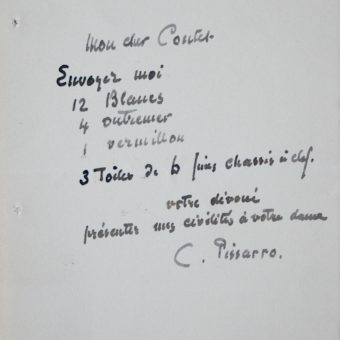 Mon cher Contet
Envoyez moi
12 Blancs
4 outremer
1 vermillon
3 Toiles de 6 fines chassis à clef.
votre dévoué
présentez mes civilités à votre dame
C. Pissarro.